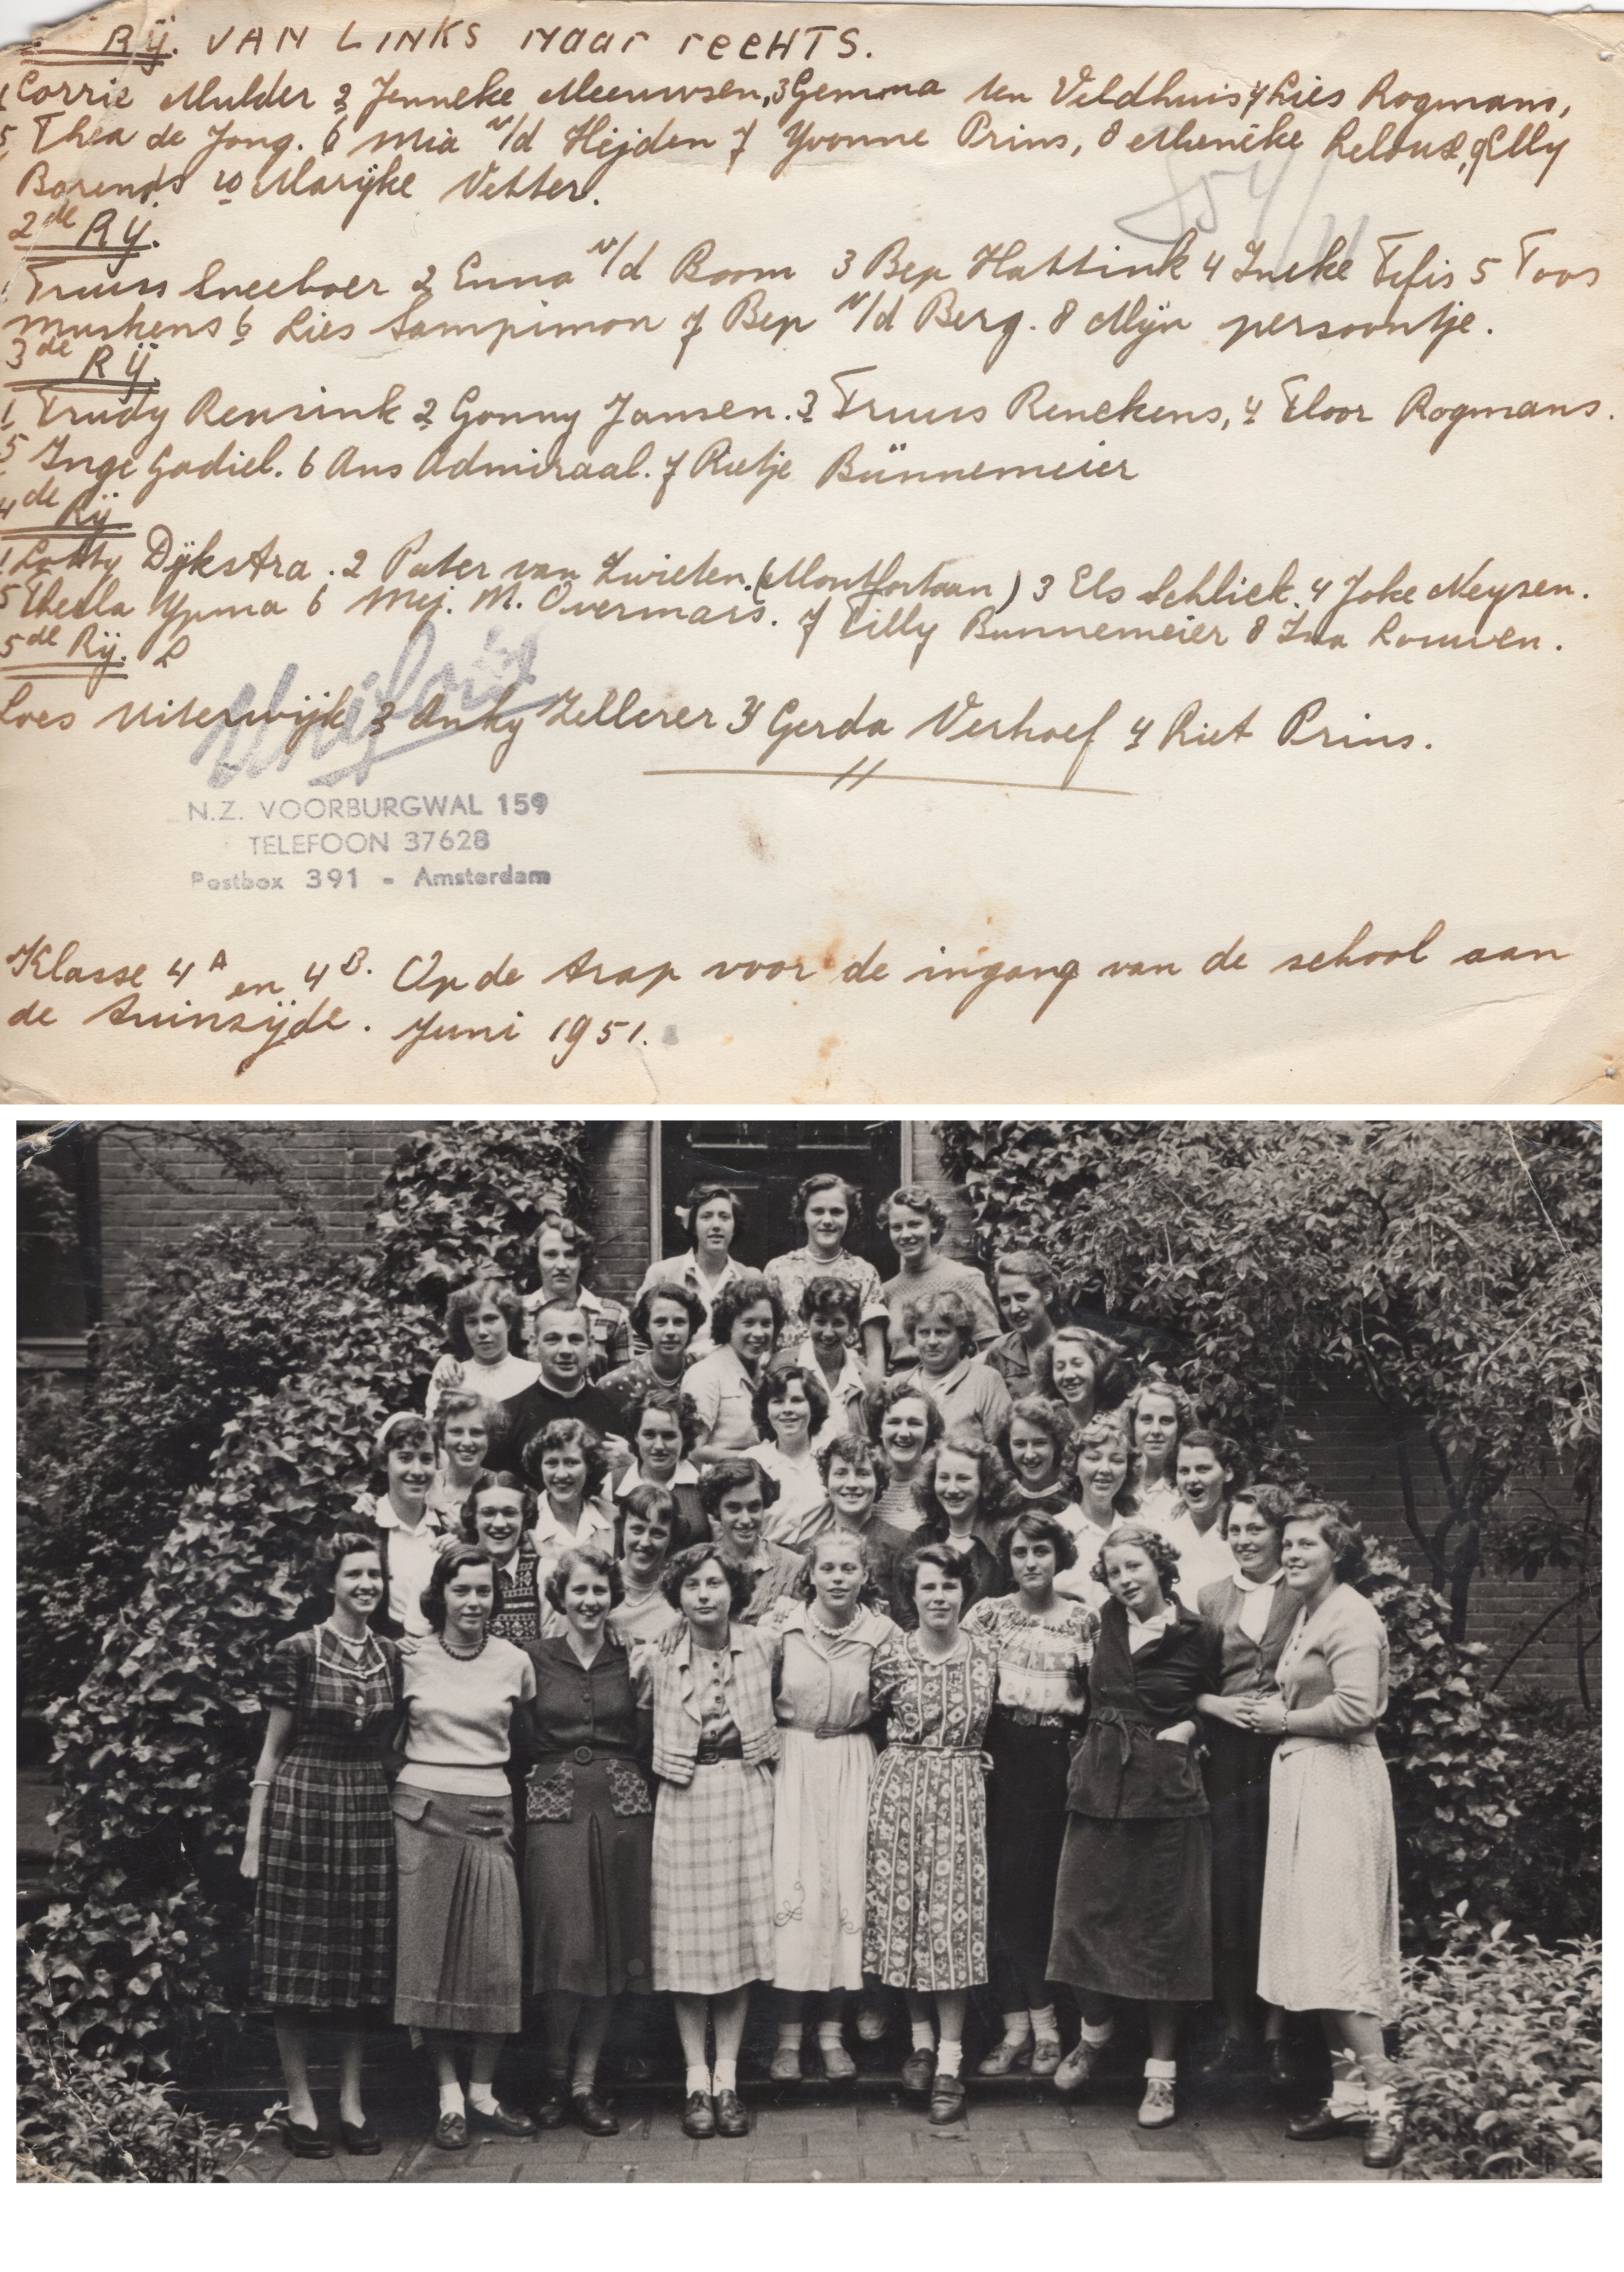 Rij. VAN LINKS naar reCHTS.
1 Corrie Mulder 2 Jenneke Meeuwsen, 3 Gemma ten Veldhuis 4 Lies Rogmans,
5 Thea de Jong. 6 Mia v/d Heijden 7 Yvonne Prins, 8 Meneke 9 Elly
Barends 10 Marijke Vetter.
2de Rij.
1 Truus Sneeboer 2 Enna v/d Boom 3 Bep Hattink 4 Ineke Tefis 5 Toos
Muskens 6 Lies Sampimon 7 Bep v/d Berg. 8 Mijn persoontje.
3de Rij.
1 Trudy Rensink 2 Gonny Jansen. 3 Truus Renckens, 4 Floor Rogmans.
5 Inge Gadiel. 6 Ans Admiraal. 7 Rietje Bünnemeier
4de Rij
1 Lotty Dijkstra. 2 Pater van Zwieten. (Montfortaan) 3 Els Schliek. 4 Joke Neysen.
5 Thecla Ypma 6 Mej. M. Overmars. 7 Tilly Bunnemeier 8 Ina Louwen.
5de Rij. L
Loes Uiterwijk 2 Anky Zellerer 3 Gerda Verhoef 4 Riet Prins.
N.Z. VOORBURGWAL 159
TELEFOON 37628
Postbox 391 - Amsterdam
Klasse 4A en 4B. Op de trap voor de ingang van de school aan
de tuinzijde. Juni 1951.